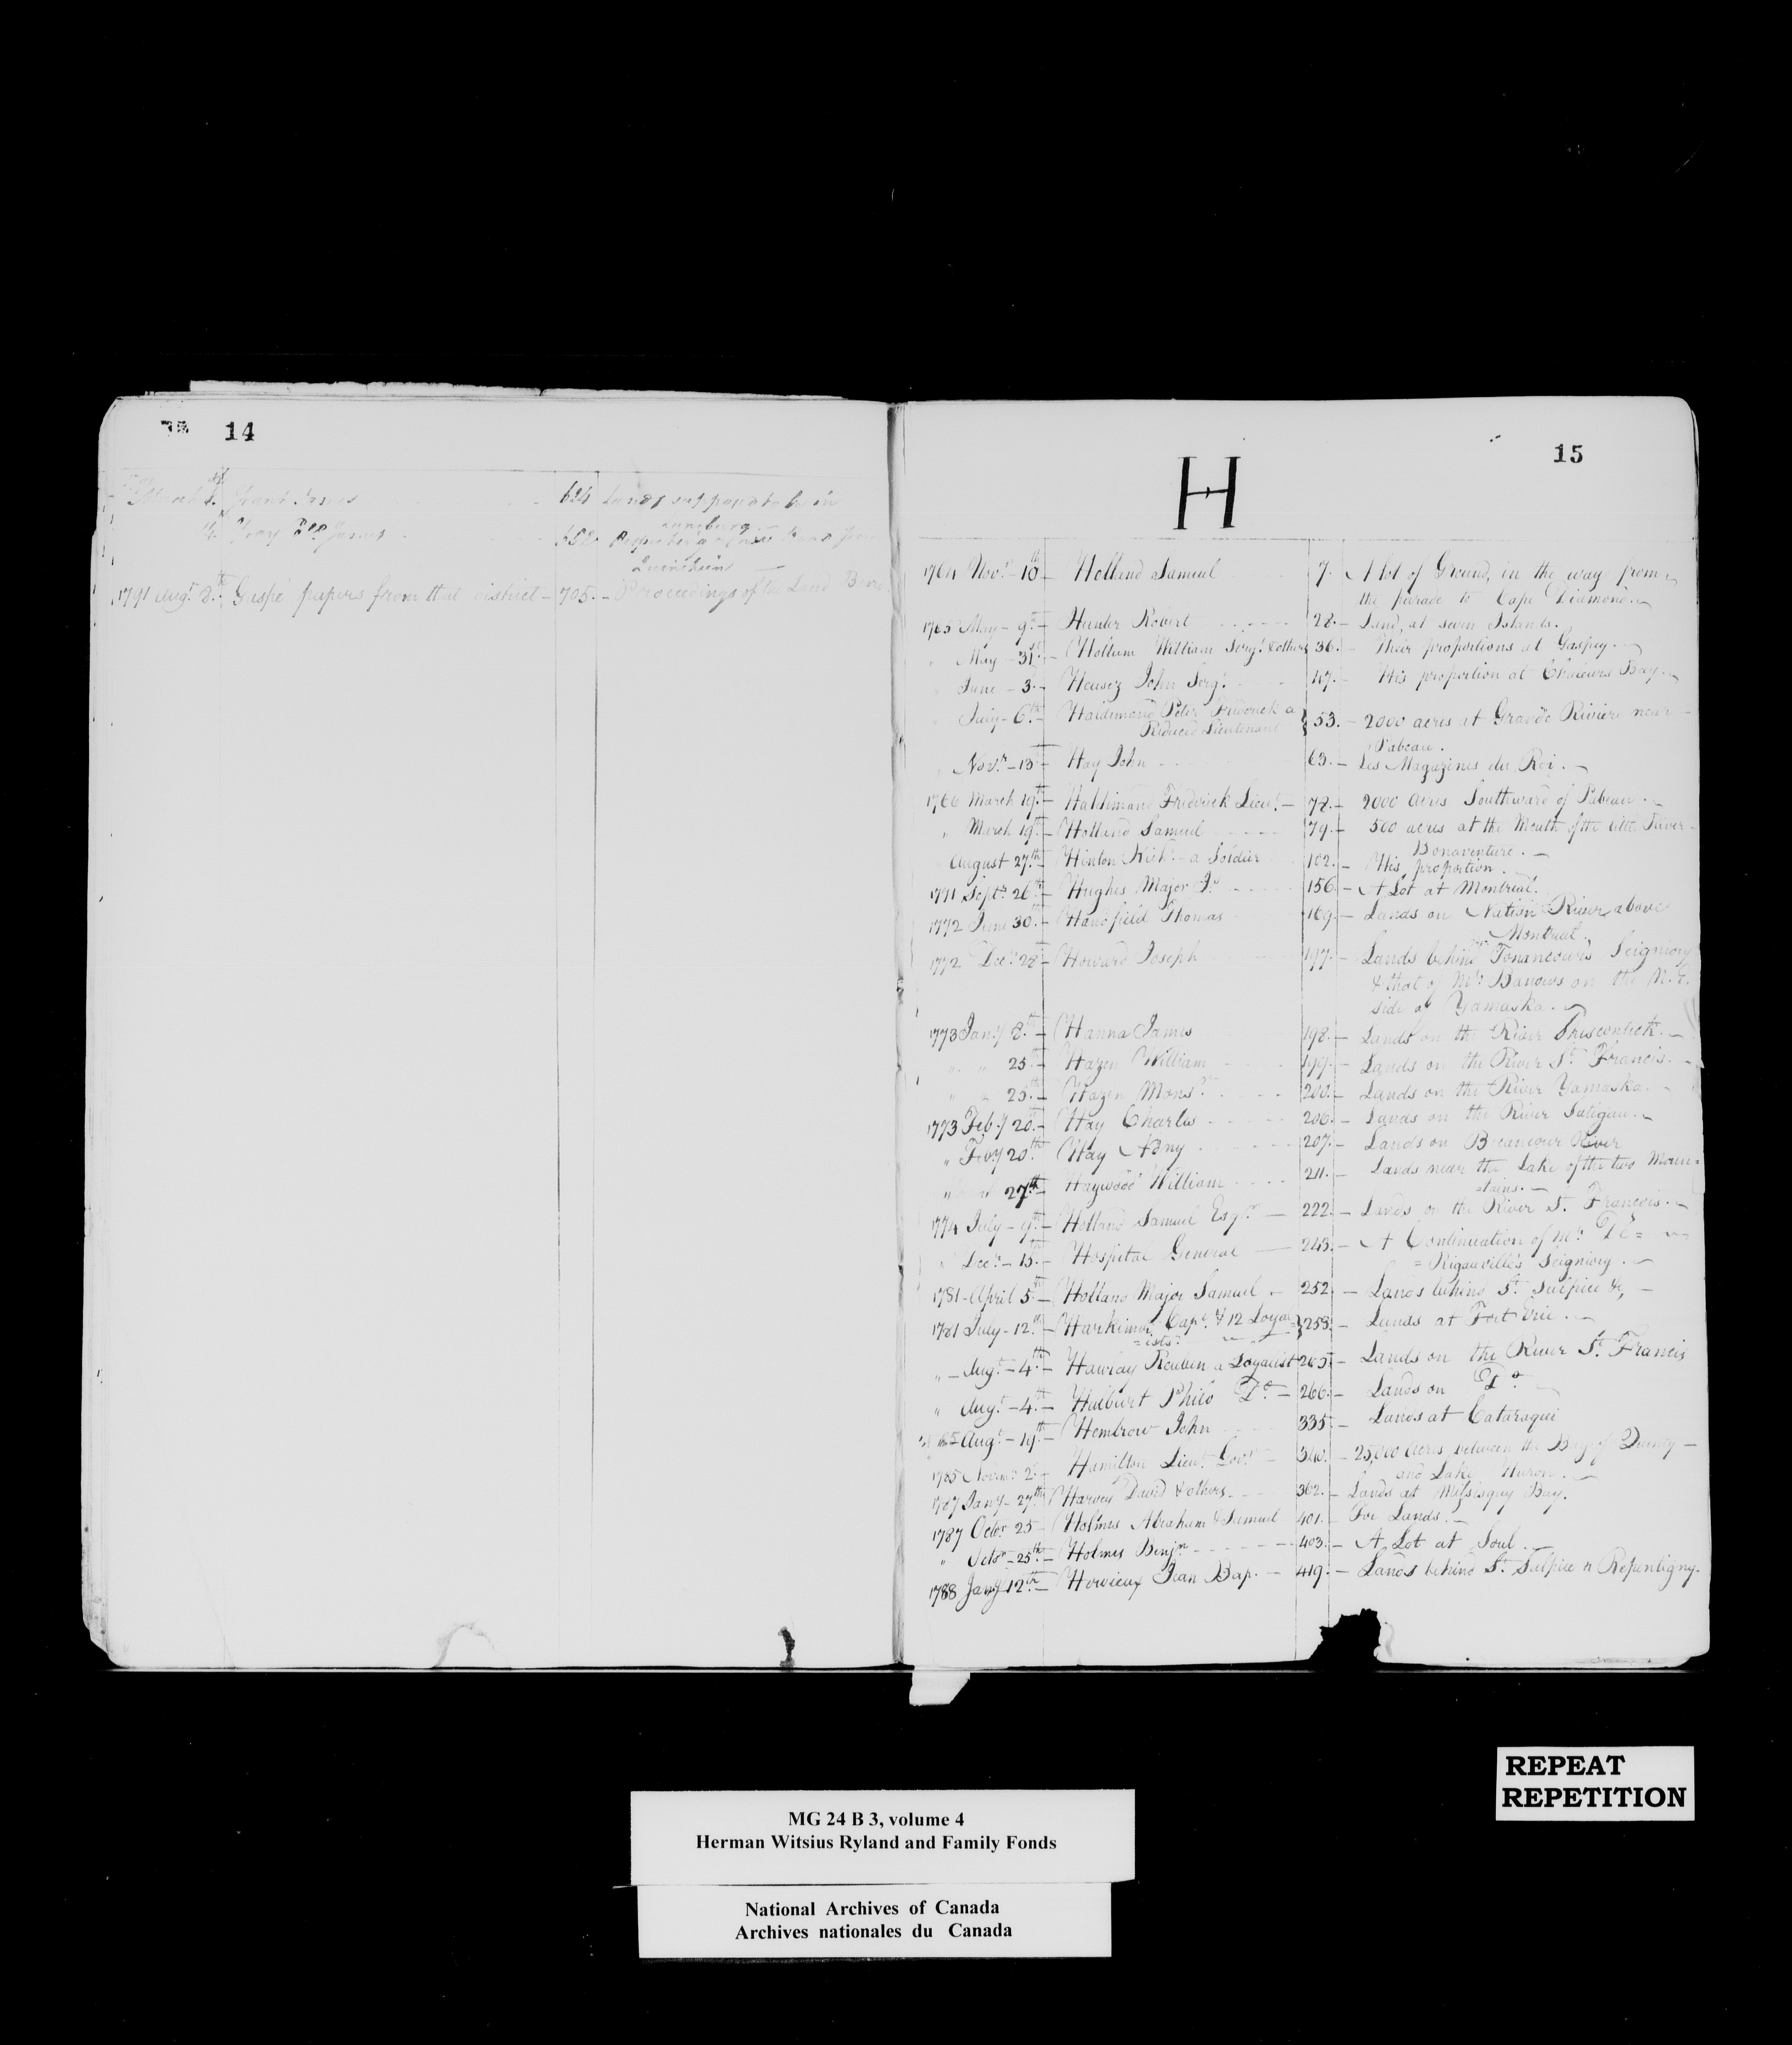 14
Grant James - 624 Lands supposed to be in
Luneburg
4. Gray James - 652.
1791 Augt. 2d. Gaspé papers from that district - 705. - Proceedings of the Land
15
H
1764 Novr. 10th - Holland Samuel 7. A lot of Ground, in the way from
the parade to Cape Diamond.
1765 May - 9th - Hunter Robert 28. - Land, at seven Islands.
" May - 31st - Hollum William Sergt. & others 36. - Their proportions at Gaspey.
" June - 3. - Sergt. 47. - His proportion at Chaleurs Bay.
" July - 6th - Haldimand Peter Frederick a
Reduced Lieutenant } 53. - 2000 acres at Grande Riviere near
Pabeau.
" Novr. - 13th - Hay John 63. - Les Magazines du Roi.
1766 March 19th - Haldimand Frederick Lieut. - 78. - 2000 acres Southward of Pabeau.
" March 19th - Holland Samuel 79. - 500 acres at the Mouth of the little River
Bonaventure.
August 27th - Hinton Richd. - a Soldier 102. - His proportion.
1771 Septr. 26th - Hughes Major Jo. 156. - A Lot at Montreal.
1772 June 30th - Handfield Thomas 169. - Lands on Nation River above
Montreal.
1772 Decr. 28 - Howard Joseph 197. - Lands behind Tonancour's Seigniory
& that of Mr. Barrows on the N. E.
side of Yamaska.
1773 Jany. 8th - Hanna James 198. - Lands on the River
" " 25th - Hazen William 199. - Lands on the River St. Francis.
" " 25th - Hazen Monsr. 200. - Lands on the River Yamaska.
1773 Feby. 20th - Hay Charles 206. - Lands on the River Satigan.
" Feby 20th Hay 207. - Lands on Becancour River
27th - Haywood William 211. - Lands near the Lake of the two Moun=
=tains.
1774 July - 9th - Holland Samuel Esqr. - 222. - Lands on the River St. Francois.
" Decr. - 15th - Hospital General - 243. - A Continuation of Mr. De=
=Rigauville's Seigniory.
1781 - April 5th - Holland Major Samuel - 252 - Lands behind St. Sulpice &c, -
1781 July - 12th - Harkimer Capt. & 12 Loyal=
=ists. } 253. - Lands at Fort Erie.
" - Augt. - 4th - Hawley Reuben a Loyalist 265 - Lands on the River St. Francis
" Augt. - 4th - Hulburt Philo Do. - 266. - Lands on Do.
Augt. - 19th - Hembrow John 335 - Lands at Cataraqui
1785 Novr. 2. - Hamilton Lieut. Govr. - 340. - 25,000 Acres between the Bay of Quincy -
and Lake Huron.
1787 Jany - 27th Harvey David & others. 362. - Lands at Missisquy Bay.
1787 Octor. 25 - Holmes Abraham & Samuel 401. - For Lands.
" Octor. - 25th - Holmes Benjn. 403. - A Lot at Soul.
1788 Jany 12th - Hervieux Jean Bap. - 419. - Lands behind St. Sulpice & Repentigny.
REPEAT
REPETITION
MG 24 B 3, volume 4
Herman Witsius Ryland and Family Fonds
National Archives of Canada
Archives nationales du Canada